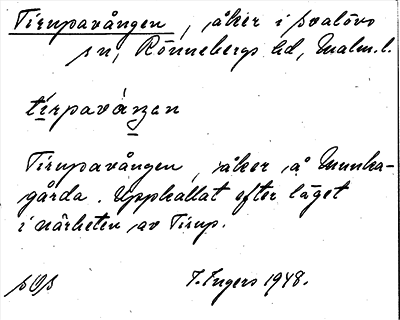 Tirupavången, åker i Svalövs
sn, Rönnebergs hd, Malm.l.
tirpavánʒen
Tirupavången, åker å Munka-
gårda. Uppkallat efter läget
i närheten av Tirup.
I. Ingers 1948.